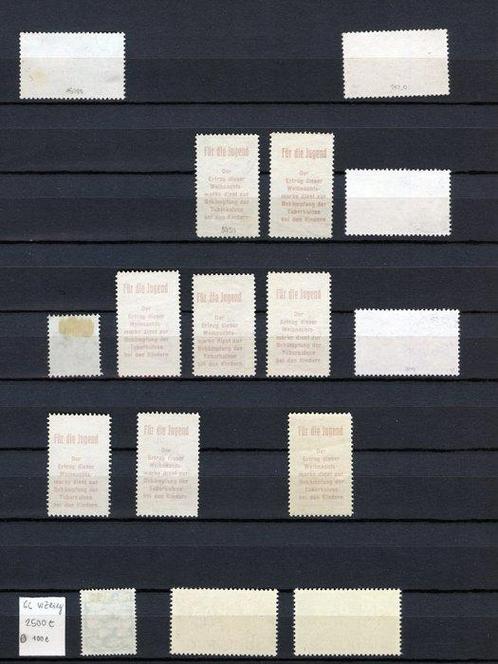 Für die Jugend
Der
Ertrag dieser
Weihnachts-
marke dient zur
Bekämpfung der
Tuberkulose
bei den Kindern
Für die Jugend
Der
Ertrag dieser
Weihnachts-
marke dient zur
Bekämpfung der
Tuberkulose
bei den Kindern
Für die Jugend
Der
Ertrag dieser
Weihnachts-
marke dient zur
Bekämpfung der
Tuberkulose
bei den Kindern
Für die Jugend
Der
Ertrag dieser
Weihnachts-
marke dient zur
Bekämpfung der
Tuberkulose
bei den Kindern
Für die Jugend
Der
Ertrag dieser
Weihnachts-
marke dient zur
Bekämpfung der
Tuberkulose
bei den Kindern
Für die Jugend
Der
Ertrag dieser
Weihnachts-
marke dient zur
Bekämpfung der
Tuberkulose
bei den Kindern
Für die Jugend
Der
Ertrag dieser
Weihnachts-
marke dient zur
Bekämpfung der
Tuberkulose
bei den Kindern
Für die Jugend
Der
Ertrag dieser
Weihnachts-
marke dient zur
Bekämpfung der
Tuberkulose
bei den Kindern
2500 €
100 €